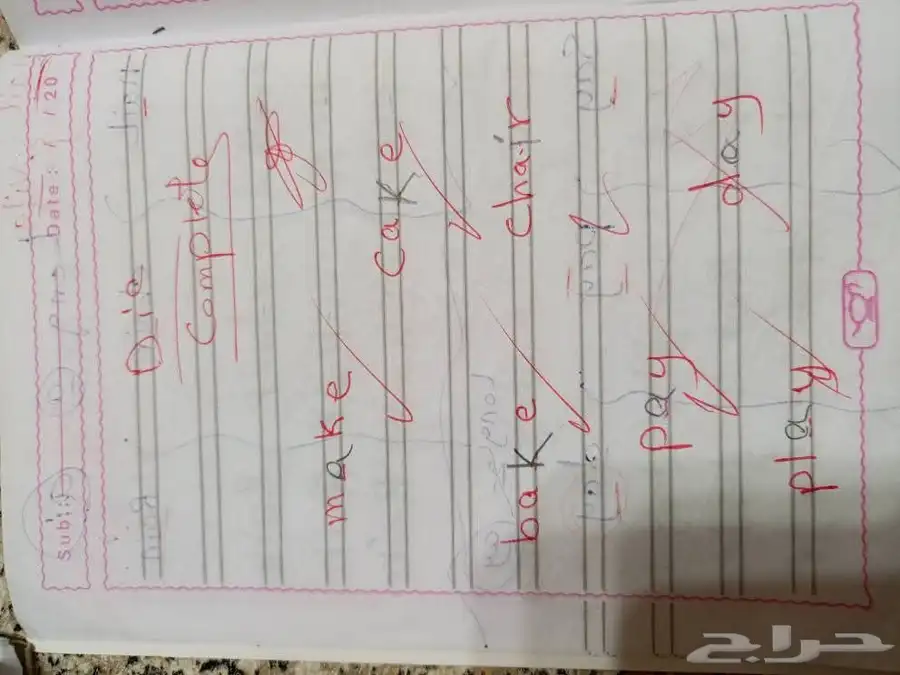 Subj: Date: / / 20
Complete
make cake
bake chair
pay day
play
حراج